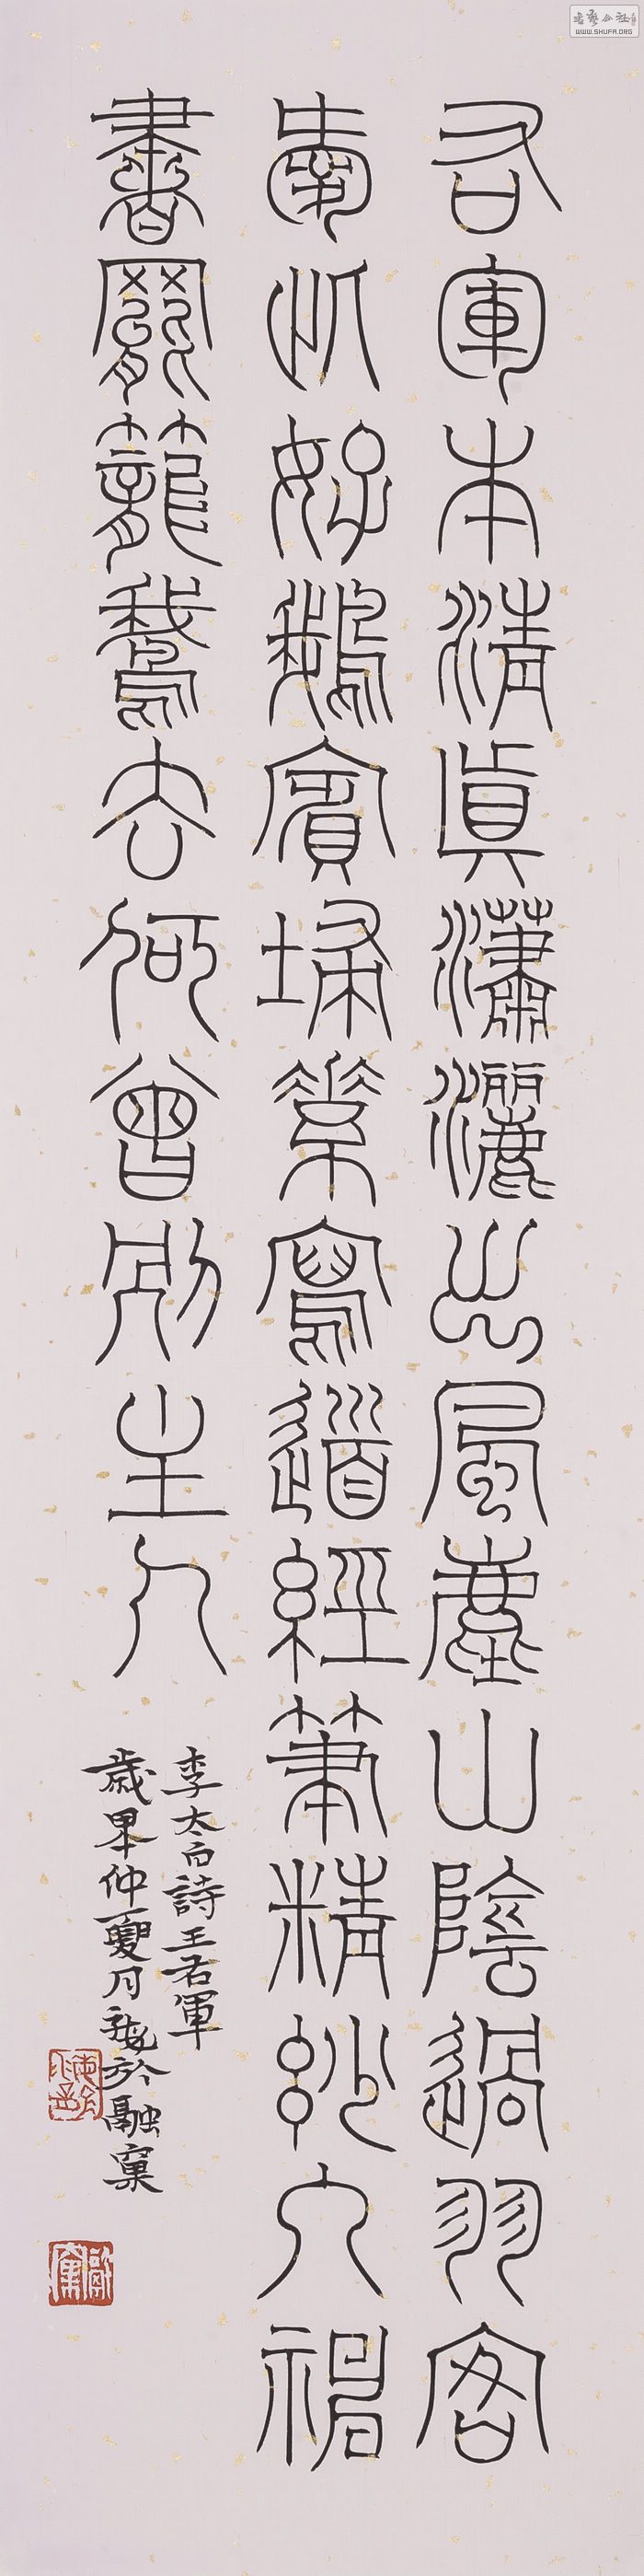 右軍本清眞瀟灑出風塵山陰過羽客
愛此好鵝賓掃素寫道經筆精妙入神
書罷籠鵝去何曾別主人
李太白詩王右軍
歲 仲夏月 於融窠
WWW.SHUFA.ORG